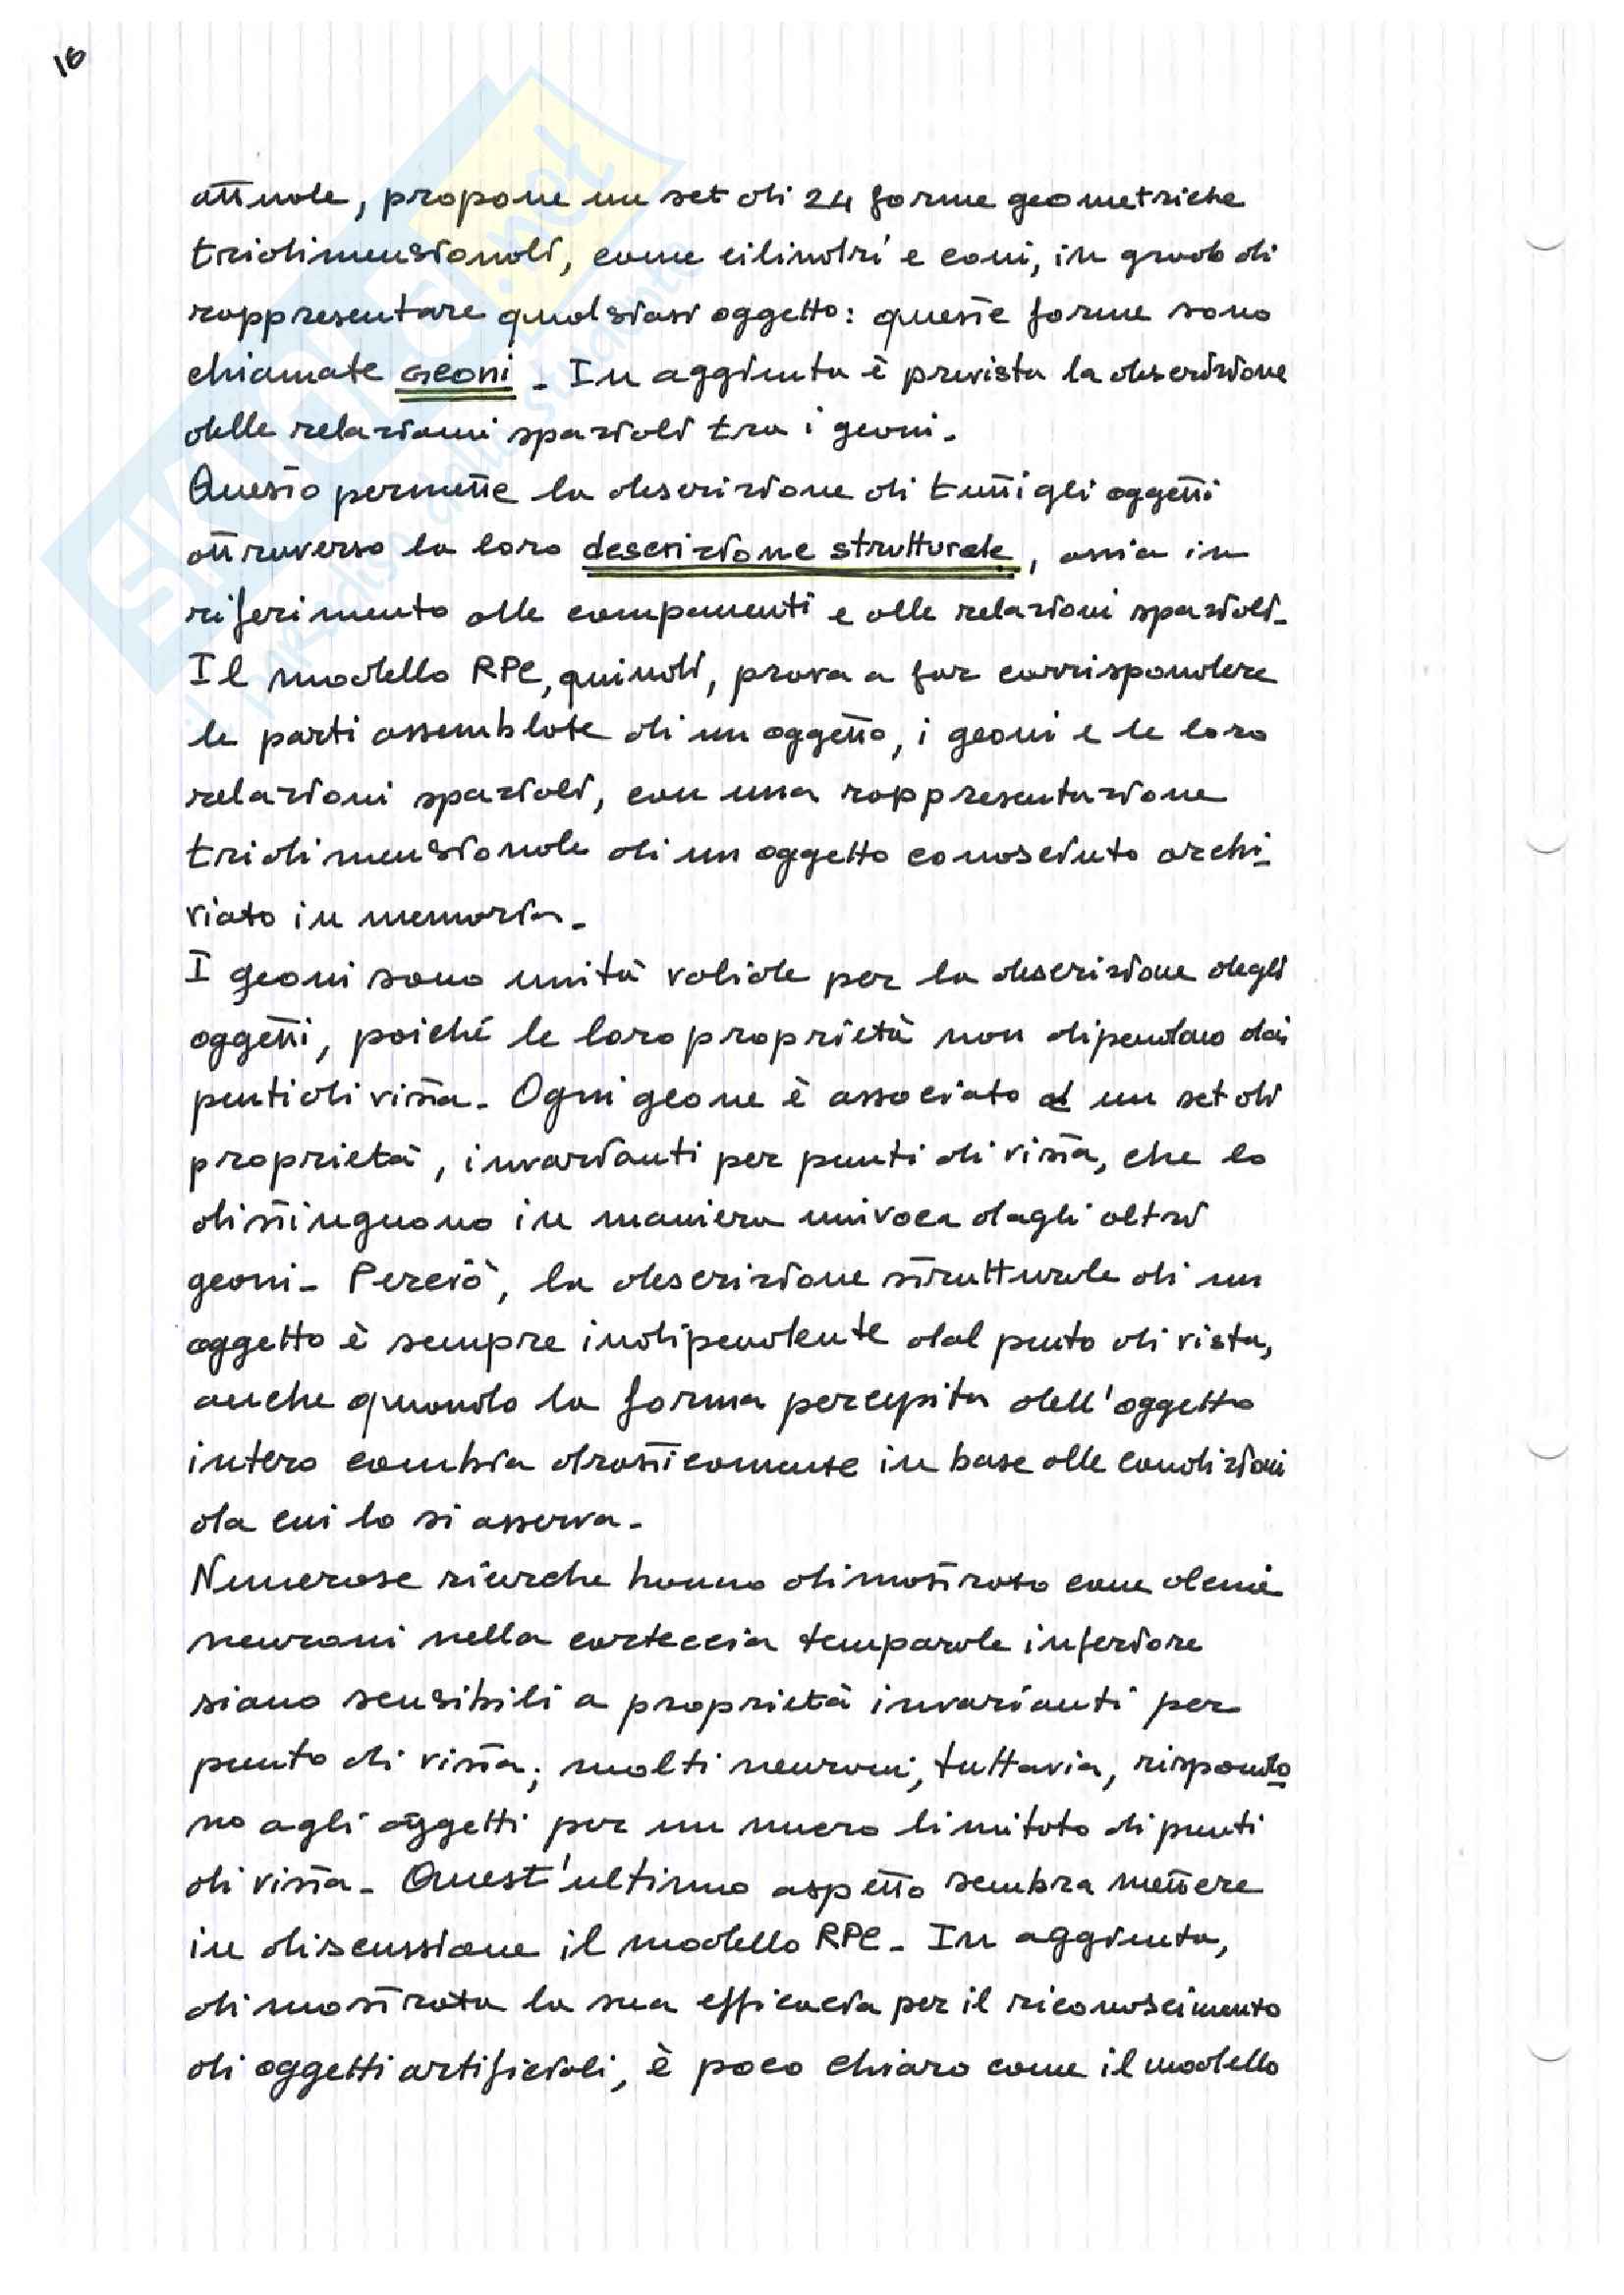 16
SKUOLA.net
il paradiso dello studente
attuale, propone un set di 24 forme geometriche
tridimensionali, come cilindri e coni, in grado di
rappresentare qualsiasi oggetto: queste forme sono
chiamate GEONI. In aggiunta è prevista la descrizione
delle relazioni spaziali tra i geoni.
Questo permette la descrizione di tutti gli oggetti
attraverso la loro descrizione strutturale, ossia in
riferimento alle componenti e alle relazioni spaziali.
Il modello RPC, quindi, prova a far corrispondere
le parti assemblate di un oggetto, i geoni e le loro
relazioni spaziali, con una rappresentazione
tridimensionale di un oggetto conosciuto archi-
viato in memoria.
I geoni sono unità valide per la descrizione degli
oggetti, poiché le loro proprietà non dipendono dai
punti di vista. Ogni geone è associato a un set di
proprietà, invarianti per punti di vista, che lo
distinguono in maniera univoca dagli altri
geoni. Perciò, la descrizione strutturale di un
oggetto è sempre indipendente dal punto di vista,
anche quando la forma percepita dell'oggetto
intero cambia drasticamente in base alle condizioni
da cui lo si osserva.
Numerose ricerche hanno dimostrato come alcuni
neuroni nella corteccia temporale inferiore
siano sensibili a proprietà invarianti per
punto di vista; molti neuroni, tuttavia, rispondo
no agli oggetti per un nuero limitato di punti
di vista. Quest'ultimo aspetto sembra mettere
in discussione il modello RPC. In aggiunta,
dimostrata la sua efficacia per il riconoscimento
di oggetti artificiali, è poco chiaro come il modello